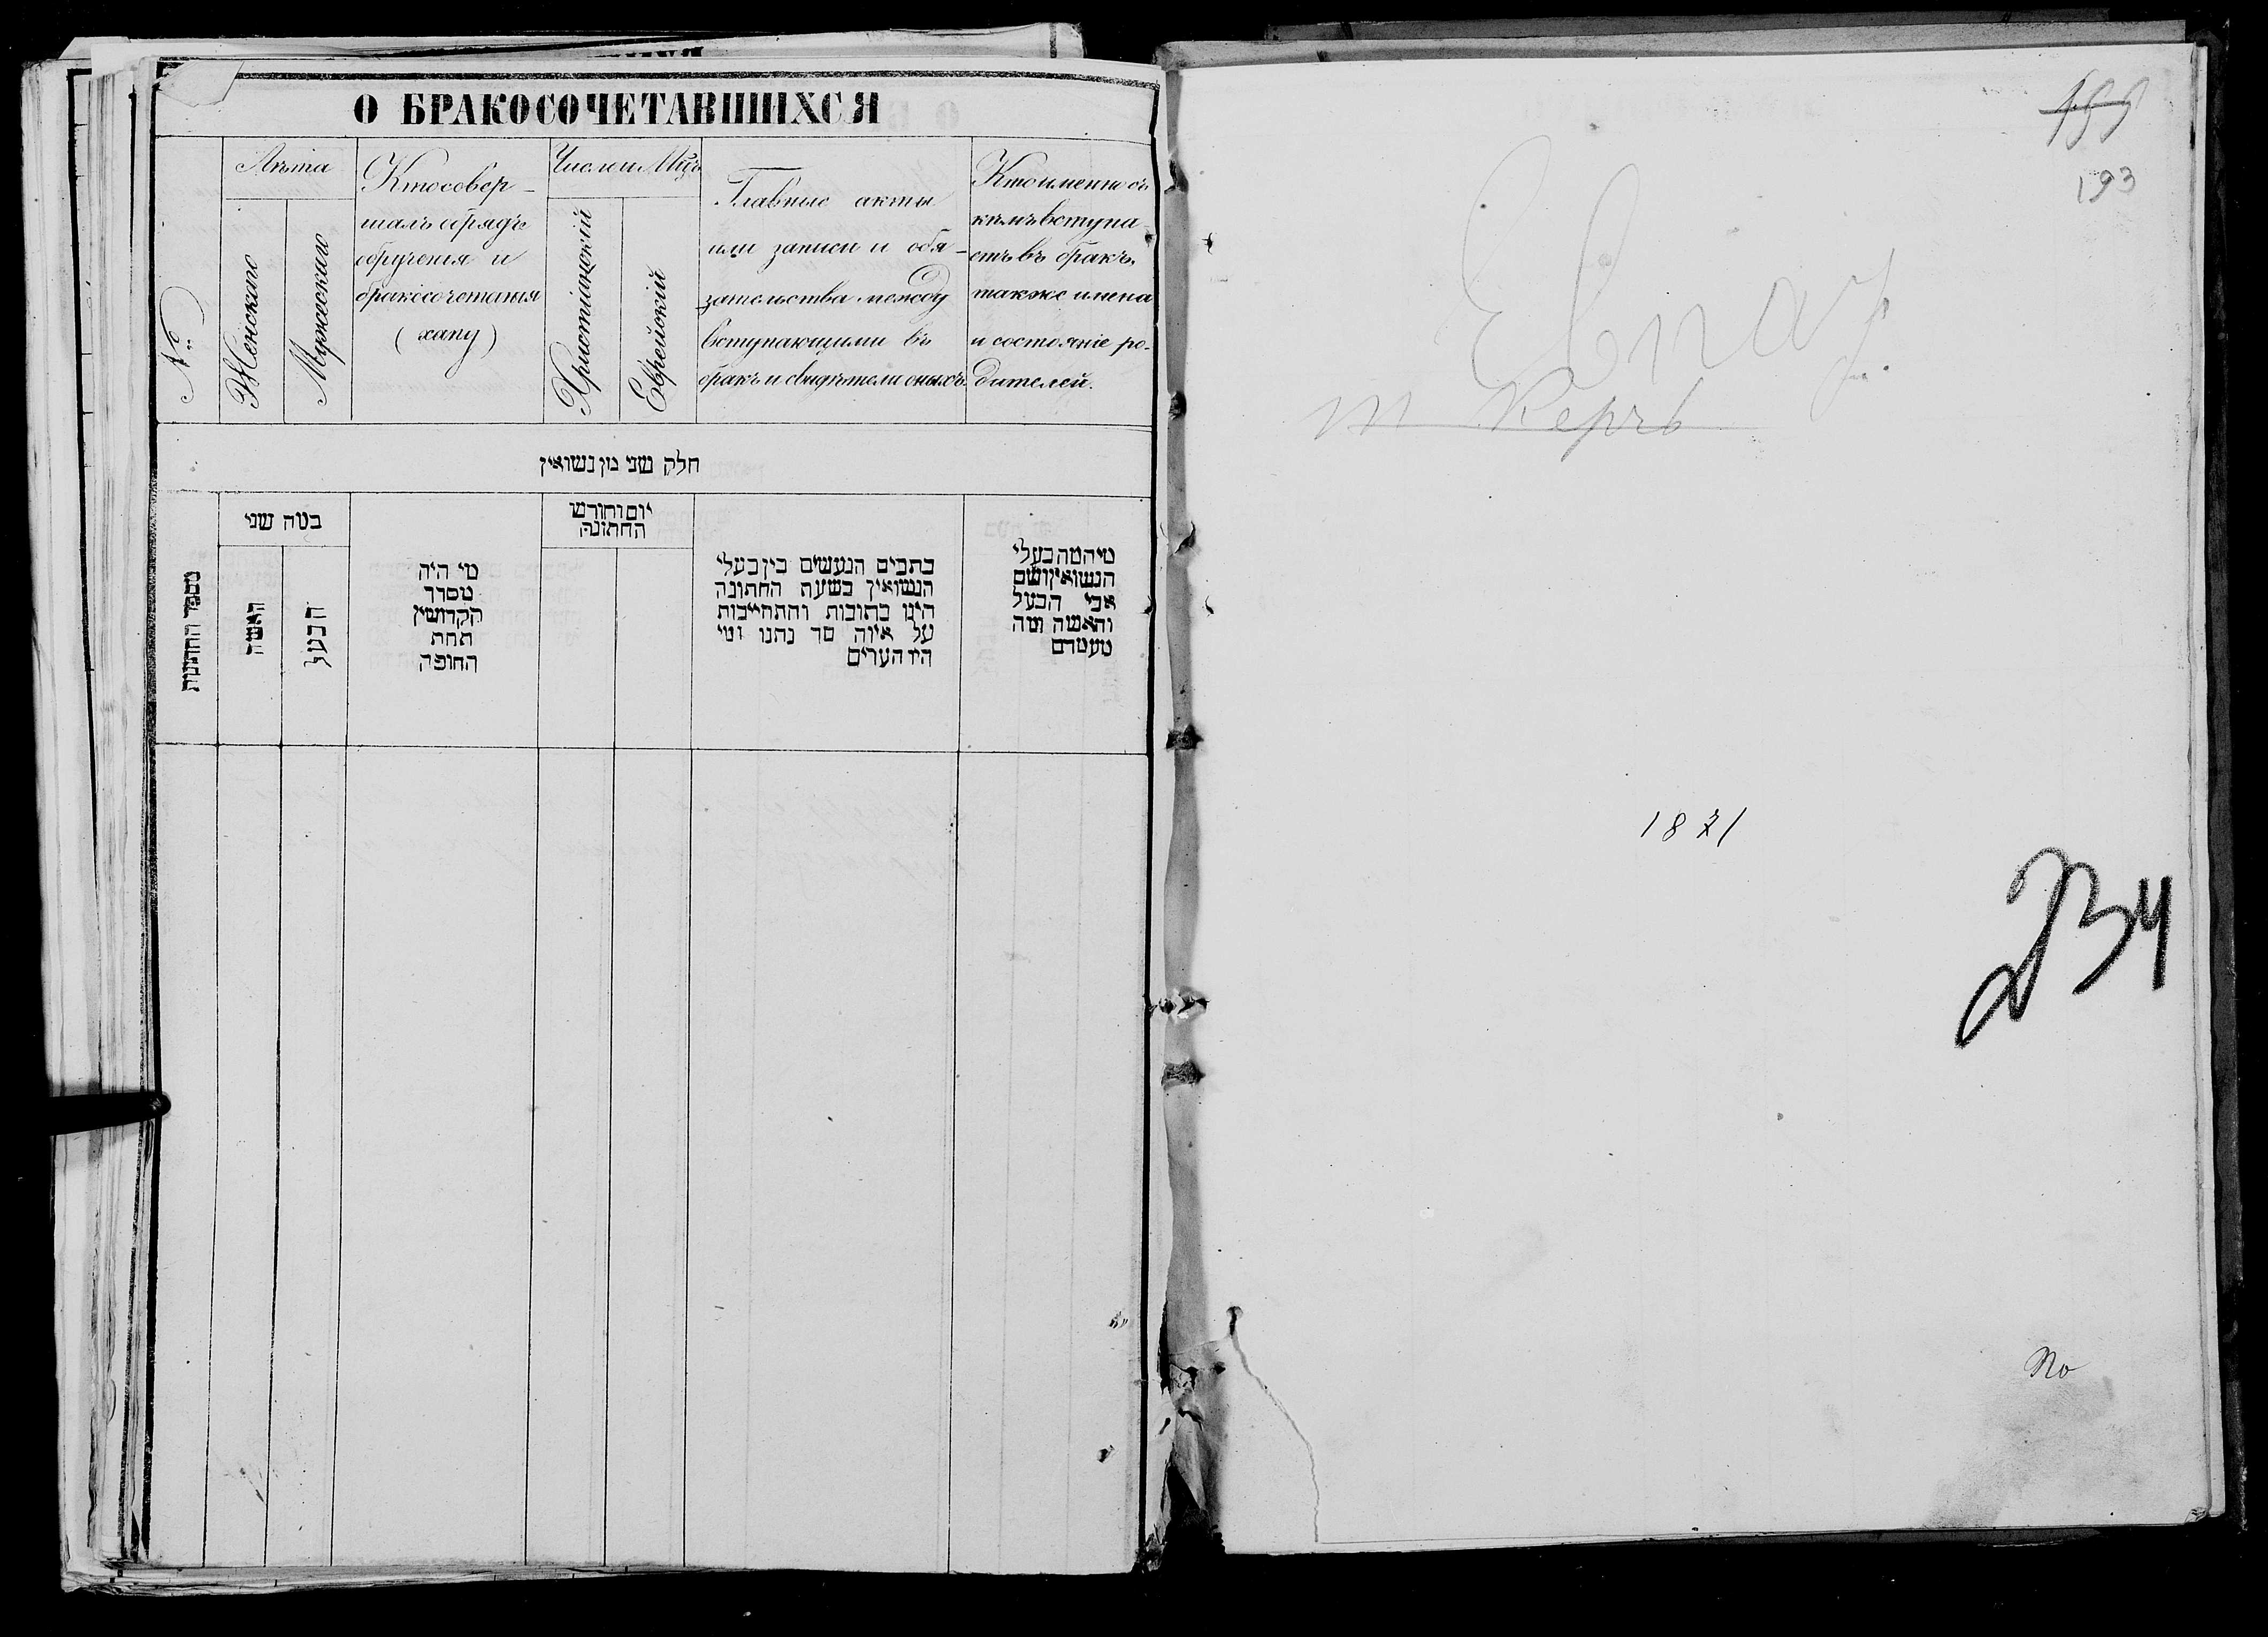 О БРАКОСОЧЕТАВШИХСЯ
№
Лѣта
Женскаго
Мужескаго
Кто совер-
шалъ обрядъ
обрученія и
бракосочетанія
(хапу)
Число и Мцъ
Христіанскій
Еврейскій
Главные акты
или записи и обя-
зательства между
вступающими въ
бракъ и свидѣтели оныхъ
Кто именно съ
кѣмъ вступа-
етъ въ бракъ,
также имена
и состояніе ро-
дителей.
חלק שני מן נשואין
מספר החתונות
במה שני
האשה
הבעל
מי היה
מסדר
הקדושין
תחת
החופה
יום וחודש
החתונה
כתבים הנעשים בין בעלי
הנשואין בשעת החתונה
היינו כתובות והתחייבות
על איזה סך נתנו ומי
היו העדים
מי המה בעלי
הנשואין ושם
אבי הבעל
והאשה ומה
מעמדם
193
Керчь
1871
234